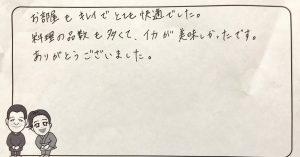 お部屋もキレイでとても快適でした。
料理の品数も多くて、イカが美味しかったです。
ありがとうございました。